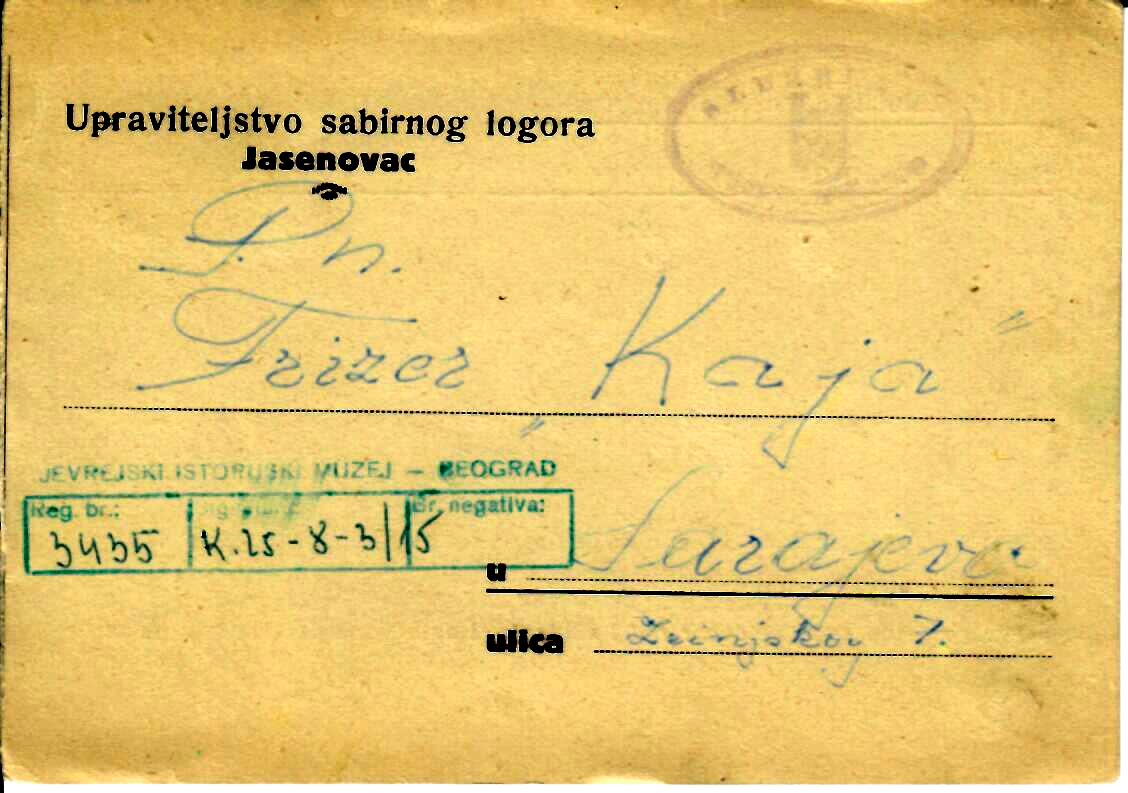 Upraviteljstvo sabirnog logora
Jasenovac
P. n.
Frizer "Kaja"
JEVREJSKI ISTORIJSKI MUZEJ — BEOGRAD
Reg. br.: Br. negativa:
3435 K.25-8-3/15
u Sarajevo
ulica Zrinjskog 7.